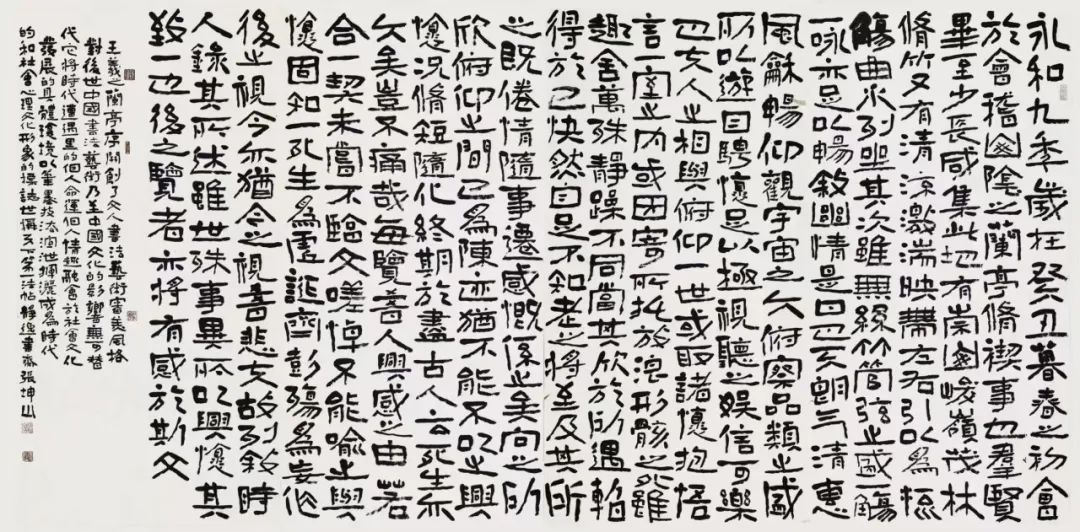 永和九年歲在癸丑暮春之初會
於會稽山陰之蘭亭脩禊事也羣賢
畢至少長咸集此地有崇山峻嶺茂林
脩竹又有清流激湍映帶左右引以為流
觴曲水列坐其次雖無絲竹管弦之盛一觴
一咏亦足以暢敘幽情是日也天朗氣清惠
風龢暢仰觀宇宙之大俯察品類之盛
所以遊目騁懷足以極視聽之娛信可樂
也夫人之相與俯仰一世或取諸懷抱悟
言一室之內或因寄所託放浪形骸之外雖
趣舍萬殊靜躁不同當其欣於所遇暫
得於己快然自足不知老之將至及其所
之既倦情隨事遷感慨係之矣向之所
欣俯仰之間已為陳迹猶不能不以之興
懷況脩短隨化終期於盡古人云死生亦
大矣豈不痛哉每覽昔人興感之由若
合一契未嘗不臨文嗟悼不能喻之與
懷固知一死生為虛誕齊彭殤為妄作
後之視今亦猶今之視昔悲夫故列敘時
人錄其所述雖世殊事異所以興懷其
致一也後之覽者亦將有感於斯文
王羲之蘭亭序開創了文人書法藝術審美風格
對後世中國書法藝術乃至中國文化的影響無可替
代它將時代遭遇里的個人命運個人情趣融會於社會文化
發展的具體環境以筆墨技法渲泄揮灑成為時代
的和社會心理文化形象的標誌世稱天下第一法帖靜遠張坤山